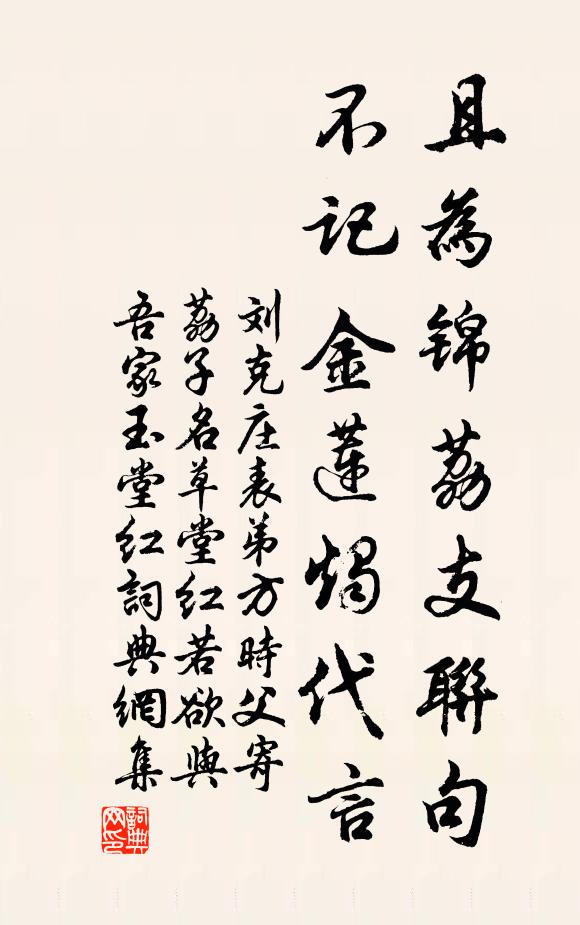 且為錦荔支聯句
不記金蓮燭代言
刘克庄表弟方時父寄
荔子名草堂紅若欲與
吾家玉堂紅詞典網集
詞典網印